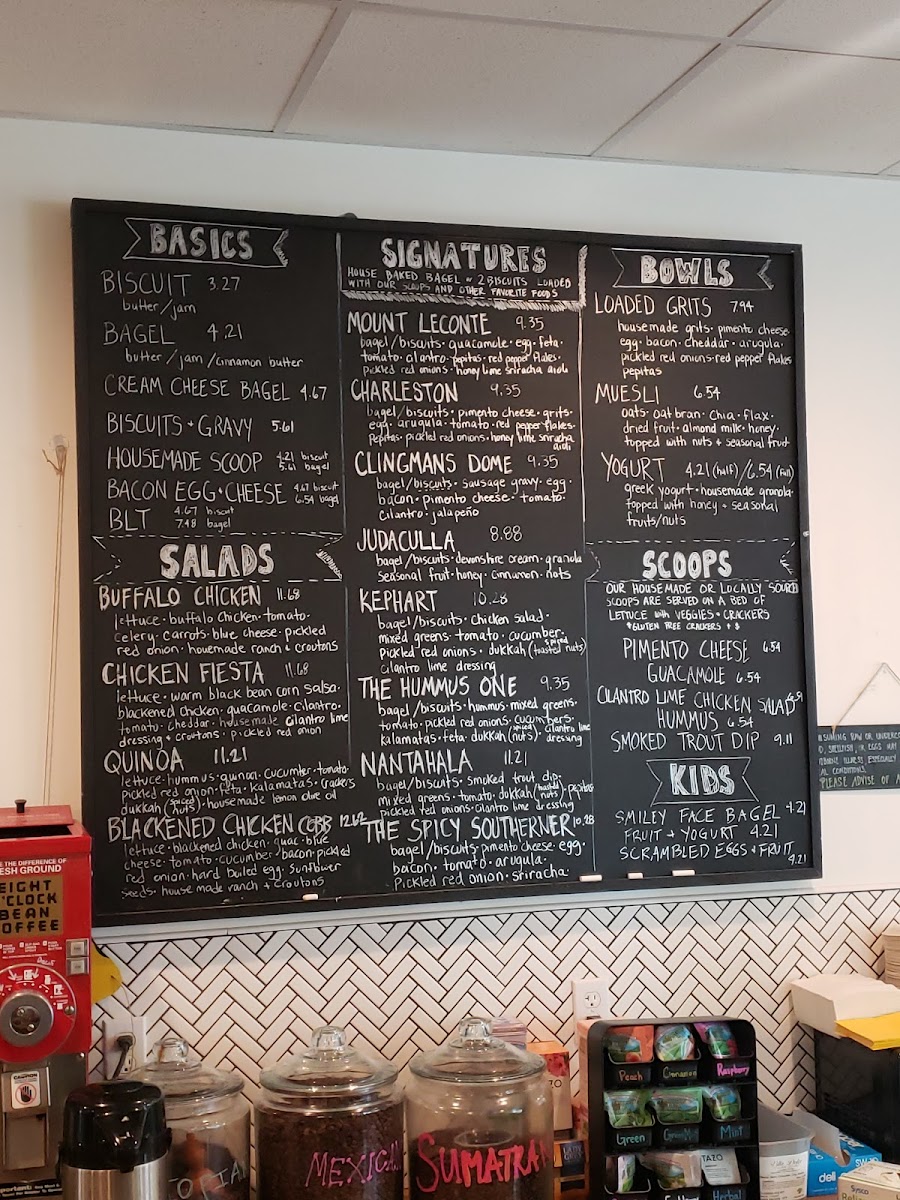 BASICS
BISCUIT 3.27
butter/jam
BAGEL 4.21
butter/jam/cinnamon butter
CREAM CHEESE BAGEL 4.67
BISCUITS + GRAVY 5.61
HOUSEMADE SCOOP 4.21 biscuit
5.61 bagel
BACON EGG + CHEESE 4.67 biscuit
6.54 bagel
BLT 4.67 biscuit
7.48 bagel
SALADS
BUFFALO CHICKEN 11.68
lettuce · buffalo chicken · tomato ·
celery · carrots · blue cheese · pickled
red onion · housemade ranch & croutons
CHICKEN FIESTA 11.68
lettuce · warm black bean corn salsa ·
blackened chicken · guacamole · cilantro ·
tomato · cheddar · housemade cilantro lime
dressing + croutons · pickled red onion
QUINOA 11.21
lettuce · hummus · quinoa · cucumber · tomato ·
pickled red onion · feta · kalamatas · crackers
dukkah (spiced nuts) · housemade lemon olive oil
BLACKENED CHICKEN COBB 12.62
lettuce · blackened chicken · guac · blue
cheese · tomato · cucumber · bacon · pickled
red onion · hard boiled egg · sunflower
seeds · house made ranch & croutons
SIGNATURES
HOUSE BAKED BAGEL or 2 BISCUITS LOADED
WITH OUR SCOOPS AND OTHER FAVORITE FOODS
MOUNT LECONTE 9.35
bagel/biscuits · guacamole · egg · feta ·
tomato · cilantro · pepitas · red pepper flakes ·
pickled red onions · honey lime sriracha aioli
CHARLESTON 9.35
bagel/biscuits · pimento cheese · grits ·
egg · arugula · tomato · red pepper flakes ·
pepitas · pickled red onions · honey lime sriracha
aioli
CLINGMANS DOME 9.35
bagel/biscuits · sausage gravy · egg ·
bacon · pimento cheese · tomato ·
cilantro · jalapeño
JUDACULLA 8.88
bagel/biscuits · devonshire cream · granola
seasonal fruit · honey · cinnamon · nuts
KEPHART 10.28
bagel/biscuits · chicken salad ·
mixed greens · tomato · cucumber ·
pickled red onions · dukkah (spiced toasted nuts)
cilantro lime dressing
THE HUMMUS ONE 9.35
bagel/biscuits · hummus · mixed greens ·
tomato · pickled red onions · cucumbers ·
kalamatas · feta · dukkah (spiced nuts) · cilantro lime dressing
NANTAHALA 11.21
bagel/biscuits · smoked trout dip ·
mixed greens · tomato · dukkah (toasted nuts) · pepitas
pickled red onions · cilantro lime dressing
THE SPICY SOUTHERNER 10.28
bagel/biscuits · pimento cheese · egg ·
bacon · tomato · arugula ·
pickled red onion · sriracha
BOWLS
LOADED GRITS 7.94
housemade grits · pimento cheese ·
egg · bacon · cheddar · arugula ·
pickled red onions · red pepper flakes
pepitas
MUESLI 6.54
oats · oat bran · chia · flax ·
dried fruit · almond milk · honey ·
topped with nuts & seasonal fruit
YOGURT 4.21 (half) / 6.54 (full)
greek yogurt · housemade granola
topped with honey & seasonal
fruits/nuts
SCOOPS
OUR HOUSEMADE OR LOCALLY SOURCED
SCOOPS ARE SERVED ON A BED OF
LETTUCE with VEGGIES & CRACKERS
*GLUTEN FREE CRACKERS + $
PIMENTO CHEESE 6.54
GUACAMOLE 6.54
CILANTRO LIME CHICKEN SALAD 6.54
HUMMUS 6.54
SMOKED TROUT DIP 9.11
KIDS
SMILEY FACE BAGEL 4.21
FRUIT + YOGURT 4.21
SCRAMBLED EGGS & FRUIT
4.21
NSUMING RAW OR UNDERCO
D, SHELLFISH, OR EGGS MAY
ODBORNE ILLNESS ESPECIALLY
AL CONDITIONS.
PLEASE ADVISE OF A
E THE DIFFERENCE OF
ESH GROUND
EIGHT
O'CLOCK
BEAN
COFFEE
CAUTION
MEXICAN
SUMATRA
Peach
Cinnamon
Raspberry
Green
Green Mint
Mint
TAZO
Herbal